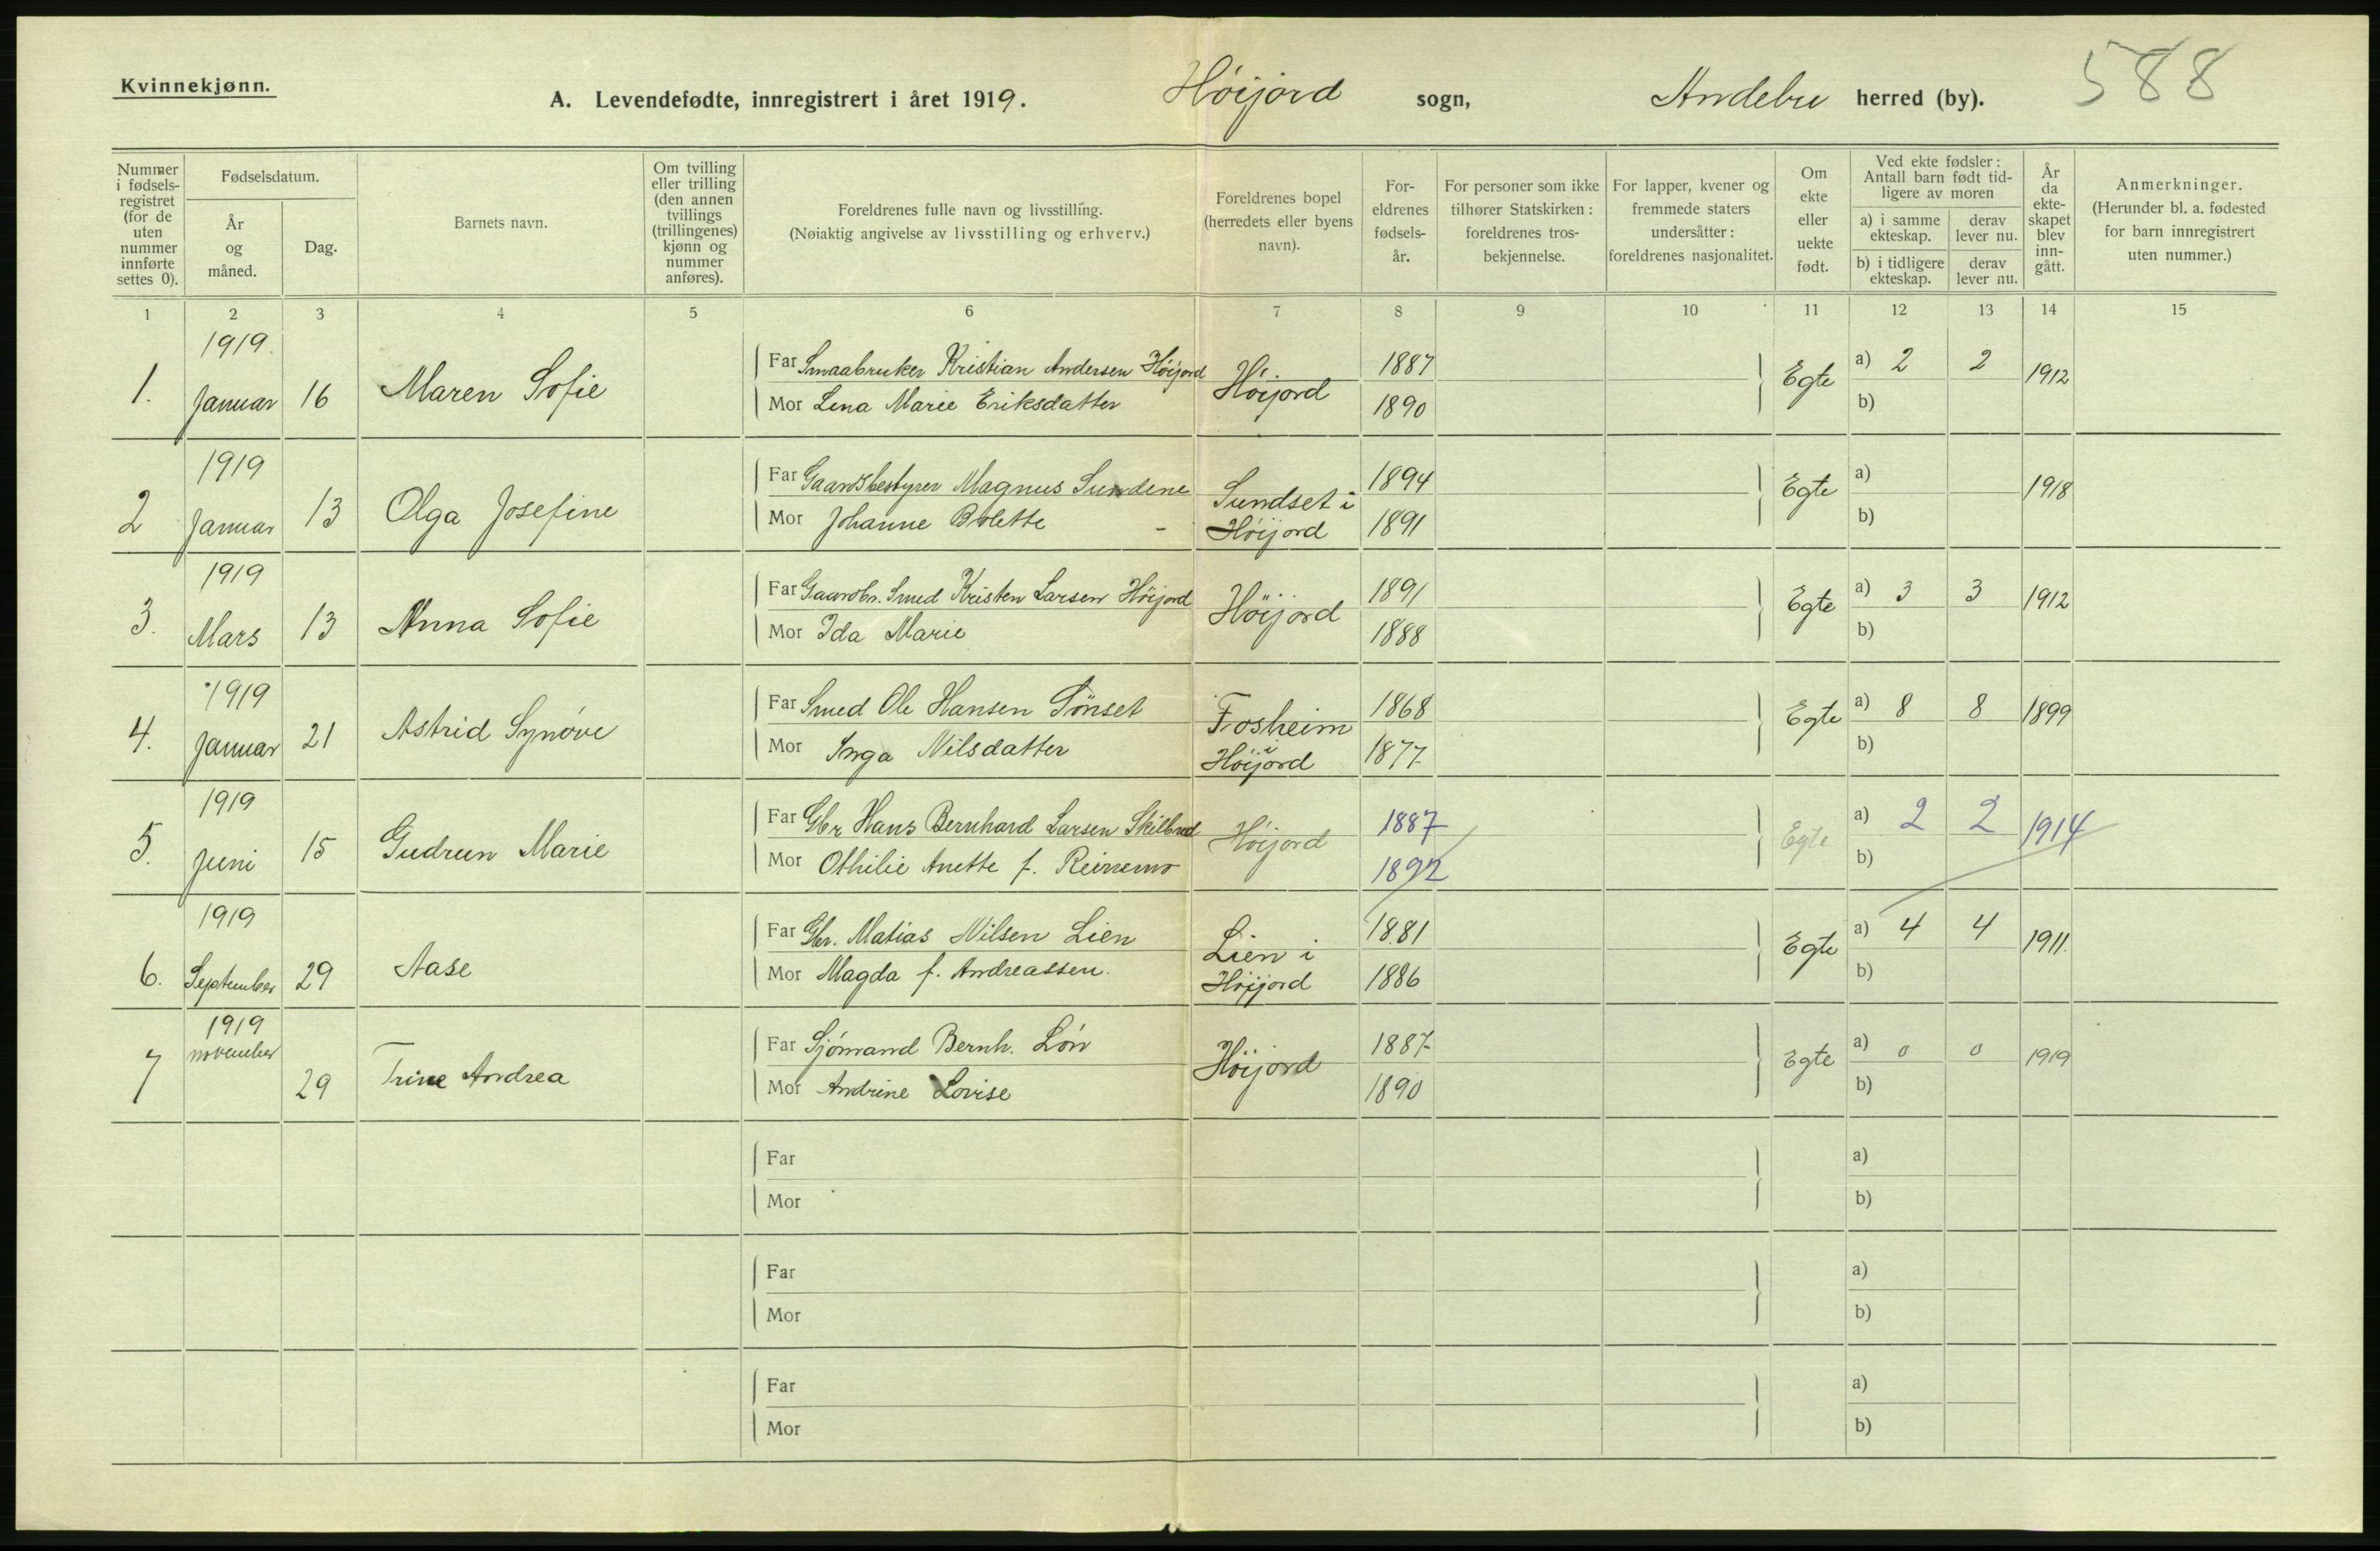 Kvinnekjønn.
A. Levendefødte, innregistrert i året 1919. Höijord sogn, Andebu herred (by). 588
Nummer i fødsels-registret (for de uten nummer innførte settes 0).
Fødselsdatum.
År og måned.
Dag.
Barnets navn.
Om tvilling eller trilling (den annen tvillings (trillingenes) kjønn og nummer anføres).
Foreldrenes fulle navn og livsstilling.
(Nøiaktig angivelse av livsstilling og erhverv.)
Foreldrenes bopel (herredets eller byens navn).
For-eldrenes fødsels-år.
For personer som ikke tilhører Statskirken: foreldrenes tros-bekjennelse.
For lapper, kvener og fremmede staters undersåtter: foreldrenes nasjonalitet.
Om ekte eller uekte født.
Ved ekte fødsler: Antall barn født tid-ligere av moren
a) i samme ekteskap.
derav lever nu.
b) i tidligere ekteskap.
derav lever nu.
År da ekte-skapet blev inn-gått.
Anmerkninger.
(Herunder bl. a. fødested for barn innregistrert uten nummer.)
1 2 3 4 5 6 7 8 9 10 11 12 13 14 15
1919.
1. Januar 16 Maren Sofie
Far Smaabruker Kristian Andersen Höijord Höijord 1887 Egte a) 2 2 1912
Mor Lena Marie Eriksdatter 1890 b)
1919
2 Januar 13 Olga Josefine
Far Gaardsbestyrer Magnus Sundene Sundset i 1894 Egte a) 1918
Mor Johanne Bolette - Höijord 1891 b)
1919
3. Mars 13 Anna Sofie
Far Gaardbr. Smed Kristen Larsen Höijord Höijord 1891 Egte a) 3 3 1912
Mor Ida Marie 1888 b)
1919
4. Januar 21 Astrid Synöve
Far Smed Ole Hansen Sönset Fosheim 1868 Egte a) 8 8 1899
Mor Inga Nilsdatter i Höijord 1877 b)
1919
5. Juni 15 Gudrun Marie
Far Gbr Hans Bernhard Larsen Skilbred Höijord 1887 Egte a) 2 2 1914
Mor Othilie Anette f. Reinemo 1892 b)
1919
6. September 29 Aase
Far Gbr. Matias Nilsen Lien Lien i 1881 Egte a) 4 4 1911.
Mor Magda f. Andreassen. Höijord 1886 b)
1919
7 november 29 Trine Andrea
Far Sjömand Bernh. Lön Höijord 1887 Egte a) 0 0 1919
Mor Andrine Lovise 1890 b)
Far a)
Mor b)
Far a)
Mor b)
Far a)
Mor b)